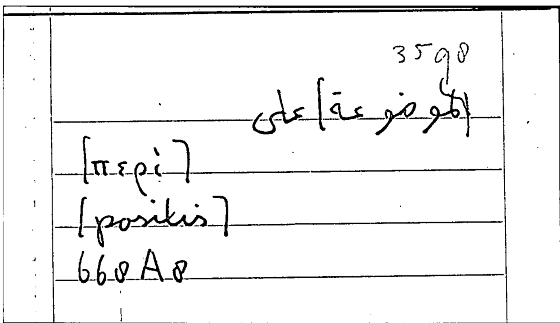 3598
[الموضوعة] على
[περὶ]
[positis]
668A8